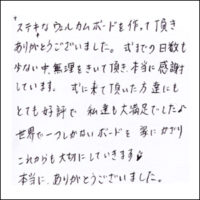 ステキなウェルカムボードを作って頂き
ありがとうございました。式までの日数も
少ない中、無理をきいて頂き、本当に感謝
しています。式に来て頂いた方達にも
とても好評で 私達も大満足でした♪
世界で一つしかないボードを 家にかざり
これからも大切にしていきます♪
本当に、ありがとうございました。